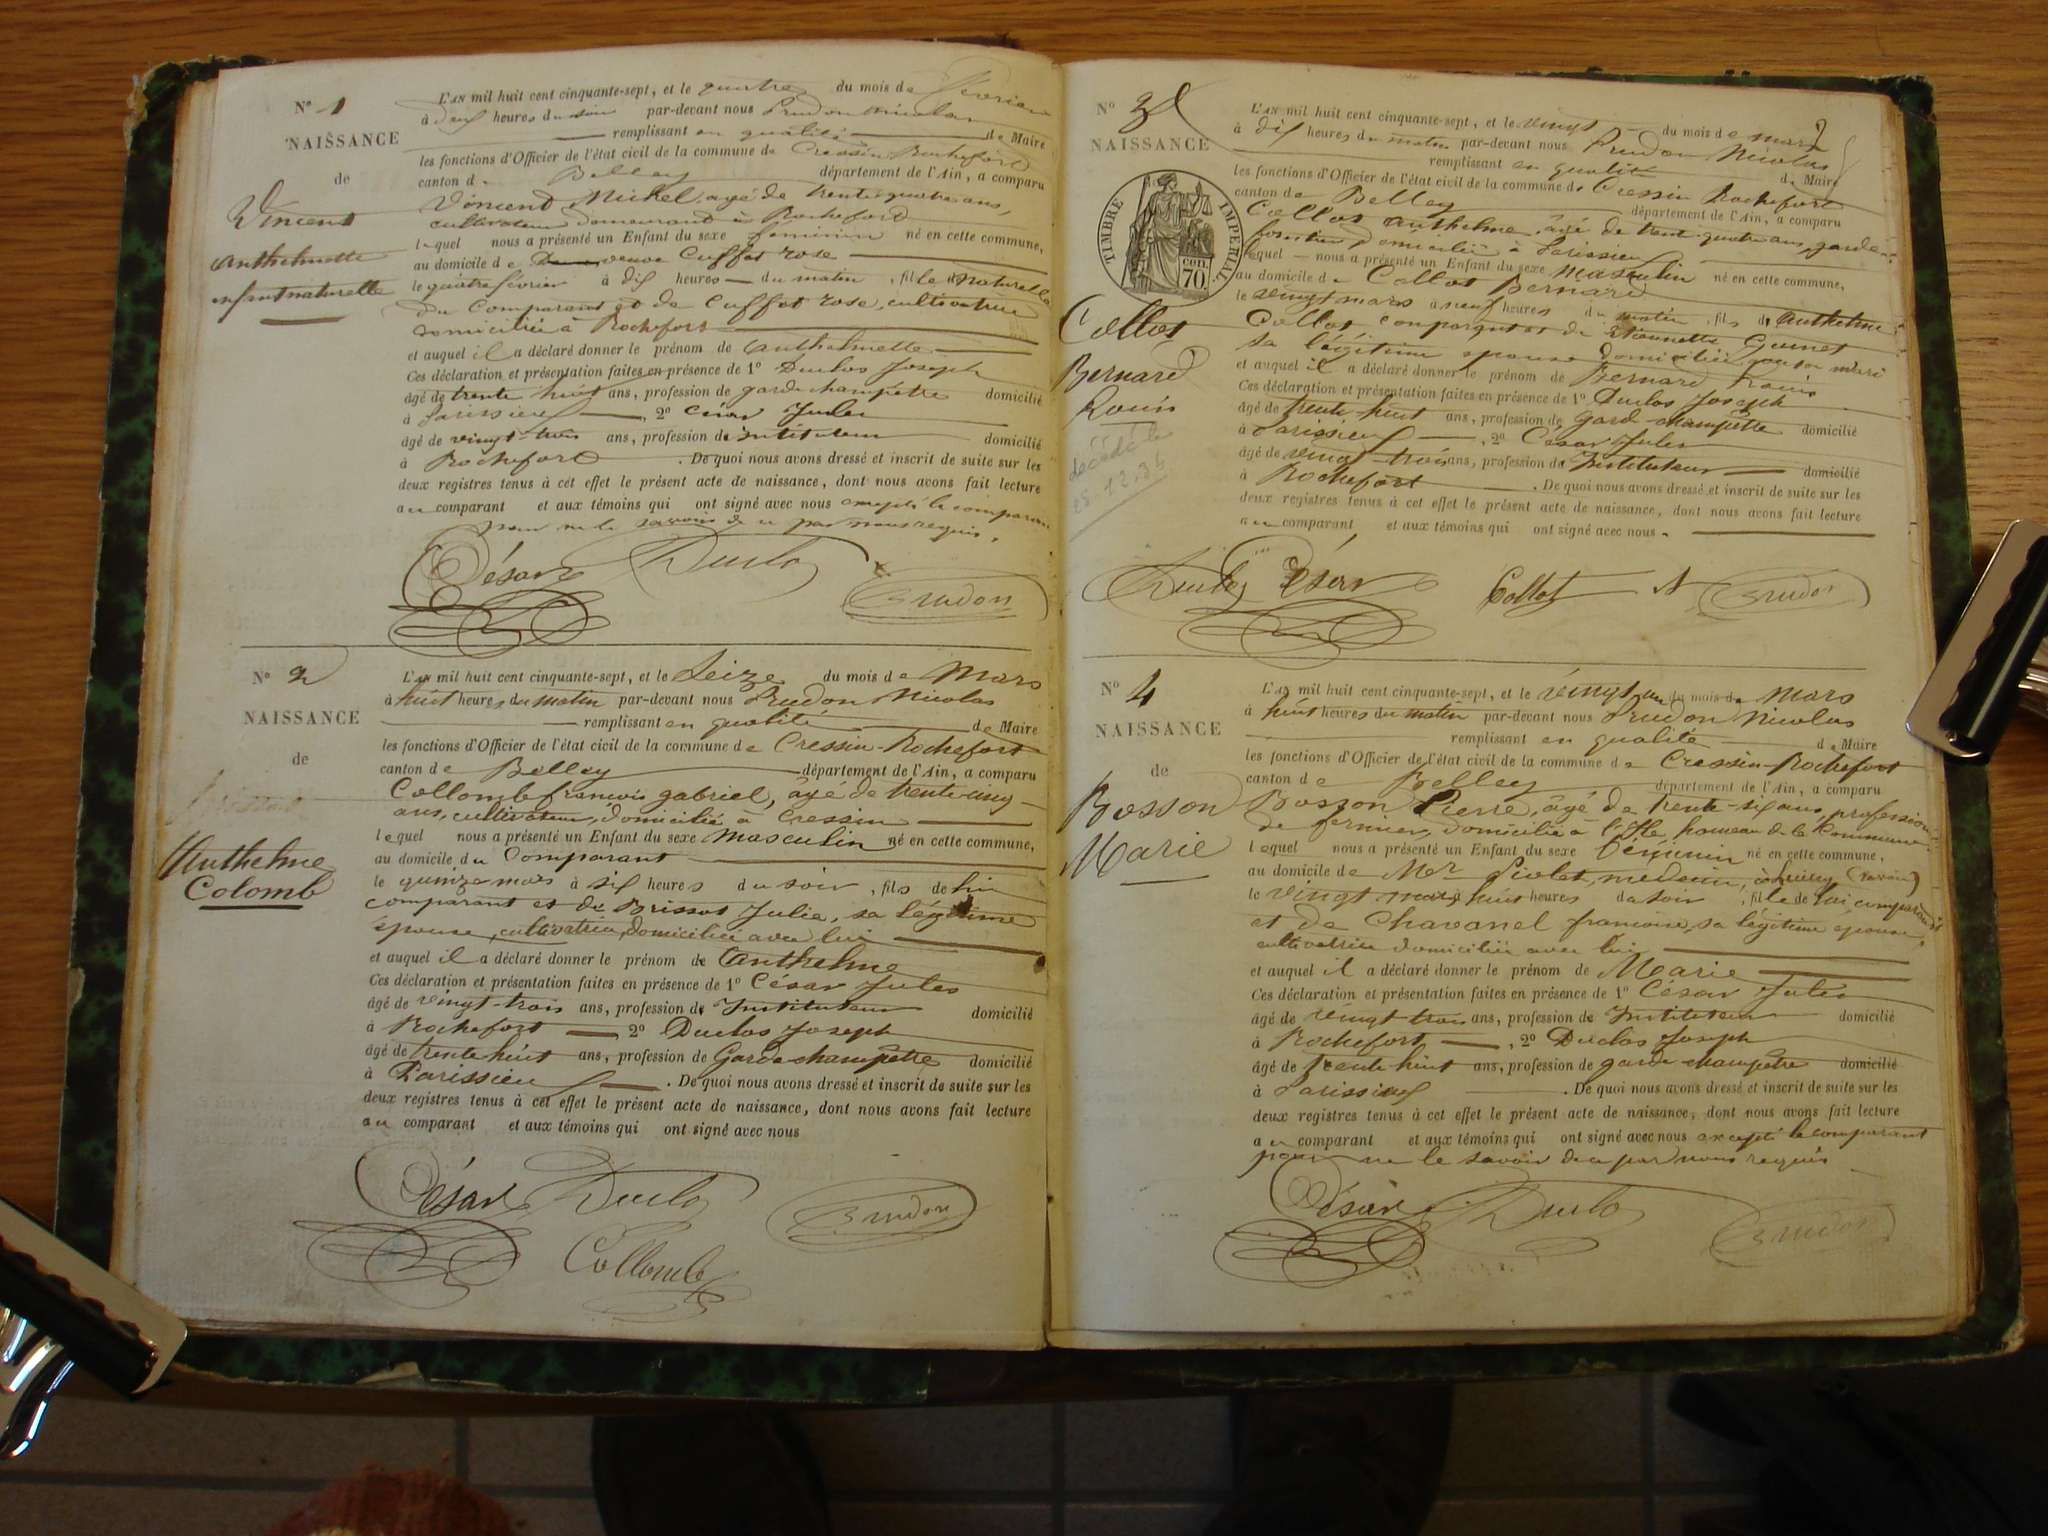 N° 1
NAISSANCE
de
Vincent
Anthelmette
enfant naturelle
L'AN mil huit cent cinquante-sept, et le quatre du mois de Février
à dix heures du par-devant nous Prudon Nicolas
remplissant en qualité de Maire
les fonctions d'Officier de l'état civil de la commune de Cressin-Rochefort
canton de Belley département de l'Ain, a comparu
Vincent Michel, agé de trente-quatre ans,
cultivateur demeurant à Rochefort
lequel nous a présenté un Enfant du sexe féminin né en cette commune,
au domicile de veuve Cuffet rose
le quatre février à dix heures du matin, fille naturelle
du comparant et de Cuffet rose, cultivatrice
domiciliée à Rochefort
et auquel il a déclaré donner le prénom de Anthelmette
Ces déclaration et présentation faites en présence de 1° Duclos Joseph
âgé de trente huit ans, profession de garde champêtre domicilié
à Parissieu, 2° César Jules
âgé de vingt-trois ans, profession de instituteur domicilié
à Rochefort. De quoi nous avons dressé et inscrit de suite sur les
deux registres tenus à cet effet le présent acte de naissance, dont nous avons fait lecture
au comparant et aux témoins qui ont signé avec nous excepté le comparant
pour ne le savoir de ce par nous requis.
César Duclos Prudon
N° 2
NAISSANCE
de
Anthelme
Colomb
L'AN mil huit cent cinquante-sept, et le Seize du mois de Mars
à huit heures du matin par-devant nous Prudon Nicolas
remplissant en qualité de Maire
les fonctions d'Officier de l'état civil de la commune de Cressin-Rochefort
canton de Belley département de l'Ain, a comparu
Collomb françois gabriel, âgé de trente-cinq
ans, cultivateur, domicilié à Cressin
lequel nous a présenté un Enfant du sexe masculin né en cette commune,
au domicile du comparant
le quinze mars à six heures du soir, fils de lui
comparant et de Brissot Julie, sa légitime
épouse, cultivatrice, domiciliée avec lui
et auquel il a déclaré donner le prénom de Anthelme
Ces déclaration et présentation faites en présence de 1° César Jules
âgé de vingt-trois ans, profession de Instituteur domicilié
à Rochefort, 2° Duclos Joseph
âgé de trente huit ans, profession de Garde champêtre domicilié
à Parissieu. De quoi nous avons dressé et inscrit de suite sur les
deux registres tenus à cet effet le présent acte de naissance, dont nous avons fait lecture
au comparant et aux témoins qui ont signé avec nous
César Duclos Prudon
Collomb
N° 3
NAISSANCE
TIMBRE IMPERIAL
70 cen
Collot
Bernard
Louis
décédé le
25.12.34
L'AN mil huit cent cinquante-sept, et le vingt du mois de mars
à dix heures du matin par-devant nous Prudon Nicolas
remplissant en qualité de Maire
les fonctions d'Officier de l'état civil de la commune de Cressin Rochefort
canton de Belley département de l'Ain, a comparu
Collot Anthelme, âgé de trente-quatre ans, garde
forestier, domicilié à Parissieu
lequel nous a présenté un Enfant du sexe masculin né en cette commune,
au domicile de Collot Bernard
le vingt mars à neuf heures du matin, fils de Anthelme
Collot comparant et de Etiennette Guinet
sa légitime épouse domiciliée avec son mari
et auquel il a déclaré donner le prénom de Bernard Louis
Ces déclaration et présentation faites en présence de 1° Duclos Joseph
âgé de trente-huit ans, profession de Garde-champêtre domicilié
à Parissieu, 2° César Jules
âgé de vingt-trois ans, profession de Instituteur domicilié
à Rochefort. De quoi nous avons dressé et inscrit de suite sur les
deux registres tenus à cet effet le présent acte de naissance, dont nous avons fait lecture
au comparant et aux témoins qui ont signé avec nous.
Duclos César Collot A Prudon
N° 4
NAISSANCE
de
Bosson
Marie
L'AN mil huit cent cinquante-sept, et le vingt-un du mois de mars
à huit heures du matin par-devant nous Prudon Nicolas
remplissant en qualité de Maire
les fonctions d'Officier de l'état civil de la commune de Cressin-Rochefort
canton de Belley département de l'Ain, a comparu
Bosson Pierre, âgé de trente-six ans, profession
de fermier, domicilié à l'Isle, hameau de la Commune
lequel nous a présenté un Enfant du sexe féminin né en cette commune,
au domicile de Mr médecin, (Savoie)
le vingt mars à huit heures du soir, fille de lui comparant
et de Chavanel françoise, sa légitime épouse,
cultivatrice domiciliée avec lui
et auquel il a déclaré donner le prénom de Marie
Ces déclaration et présentation faites en présence de 1° César Jules
âgé de vingt trois ans, profession de Instituteur domicilié
à Rochefort, 2° Duclos Joseph
âgé de trente huit ans, profession de garde champêtre domicilié
à Parissieu. De quoi nous avons dressé et inscrit de suite sur les
deux registres tenus à cet effet le présent acte de naissance, dont nous avons fait lecture
au comparant et aux témoins qui ont signé avec nous excepté le comparant
pour ne le savoir de ce par nous requis
César Duclos Prudon